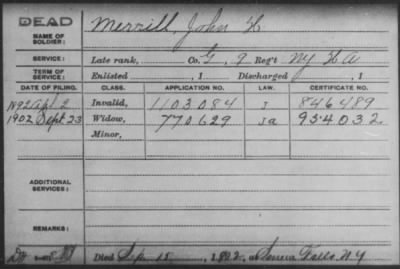 DEAD
NAME OF SOLDIER: Merrill, John H
SERVICE: Late rank, Co. G, 9 Reg't NY H A
TERM OF SERVICE: Enlisted , 1 Discharged , 1
DATE OF FILING. CLASS. APPLICATION NO. LAW. CERTIFICATE NO.
1892 Ap 2 Invalid, 1103084 J 846489
1902 Sept 23 Widow, 770629 Ja 954032
Minor,
ADDITIONAL SERVICES:
REMARKS:
Died Sep. 15, 1902, at Seneca Falls, NY